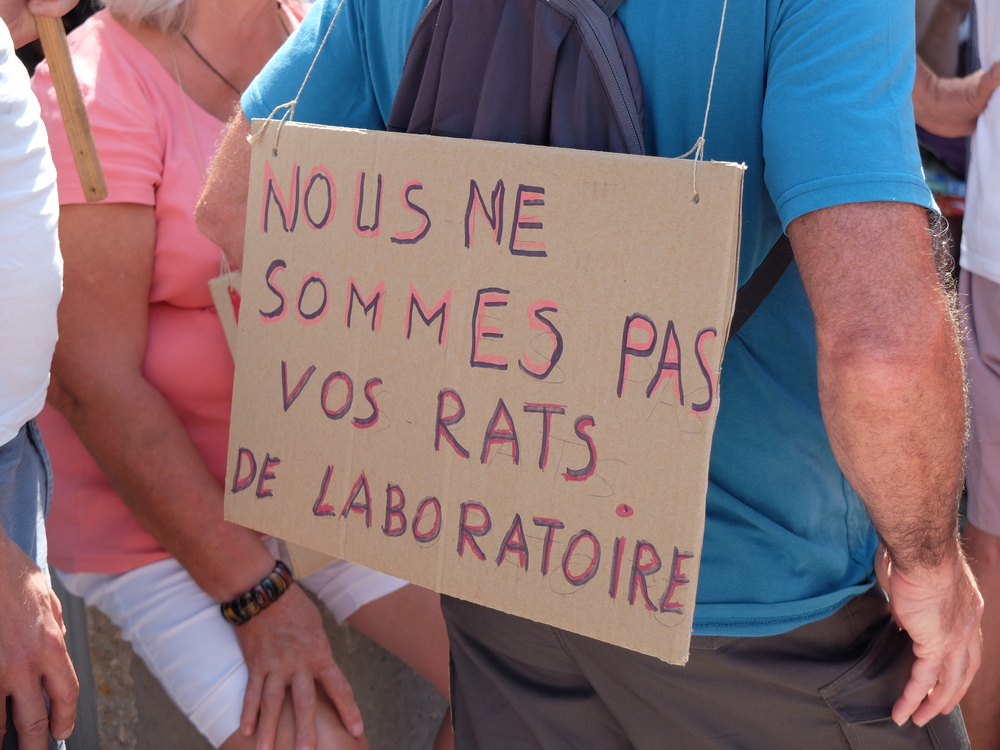 NOUS NE
SOMMES PAS
VOS RATS
DE LABORATOIRE